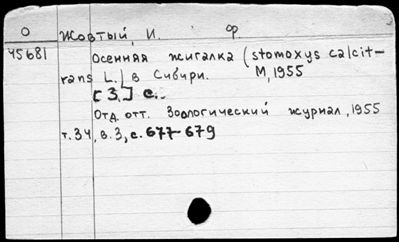 О
Жовтый, И. Ф.
45681
Осенняя жигалка (stomoxys calcit-
rans L.) в Сибири. М, 1955
[3] с.
Отд. отт. Зоологический журнал, 1955
т.34, в.3, с. 677-679